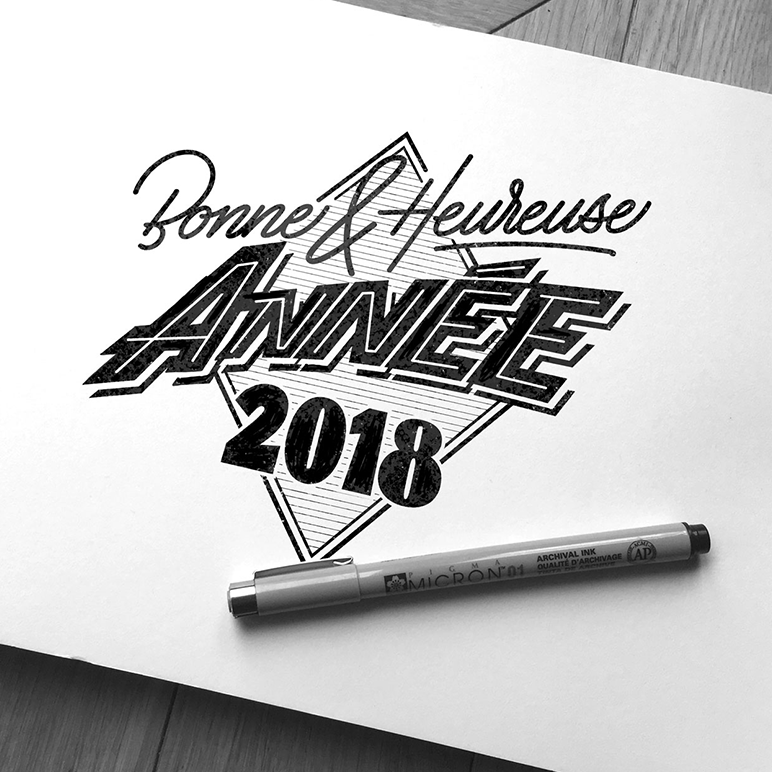 Bonne & Heureuse
ANNÉE
2018
PIGMA
MICRON 01
ARCHIVAL INK
QUALITÉ D'ARCHIVAGE
AP